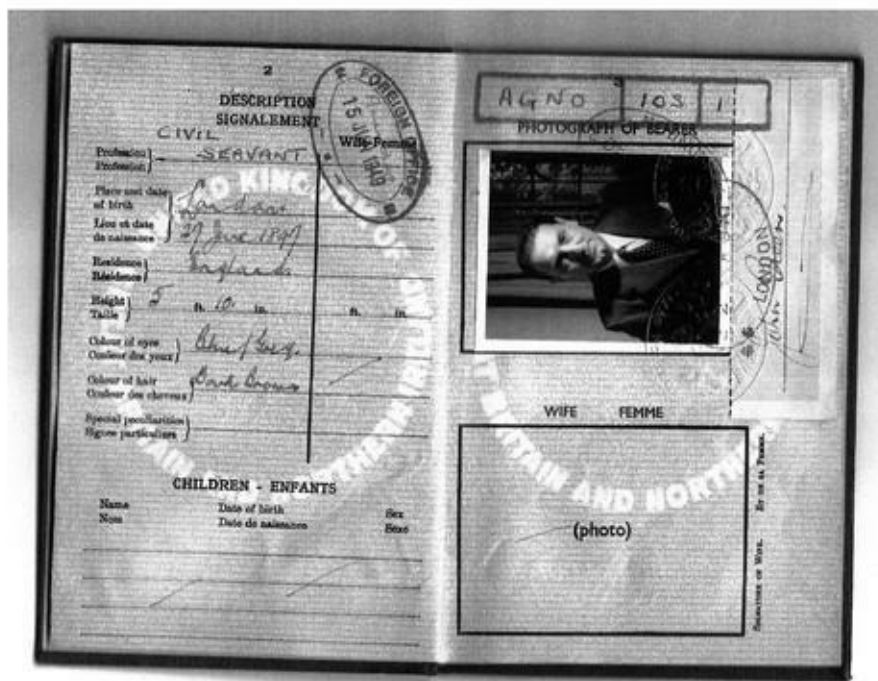 2
DESCRIPTION
SIGNALEMENT
Wife-Femme
FOREIGN OFFICE
15 1949
CIVIL
Profession
Profession
SERVANT
Place and date
of birth
London
Lieu et date
de naissance
27
Residence
Résidence
England
Height
Taille
5 ft. 10 in.
ft. in.
Colour of eyes
Couleur des yeux
Blue/Grey
Colour of hair
Couleur des cheveux
Dark Brown
Special peculiarities
Signes particuliers
CHILDREN - ENFANTS
Name Date of birth Sex
Nom Date de naissance Sexe
3
AGNO 10S 1
PHOTOGRAPH OF BEARER
LONDON
WIFE FEMME
(photo)
SIGNATURE OF WIFE. ET DE SA FEMME.
BRITAIN AND NORTHERN
KINGDOM OF
AND NORTHERN IRELAND